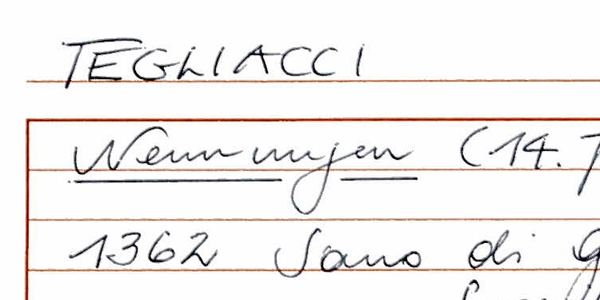 TEGLIACCI
Nennungen (14.
1362 Sano di